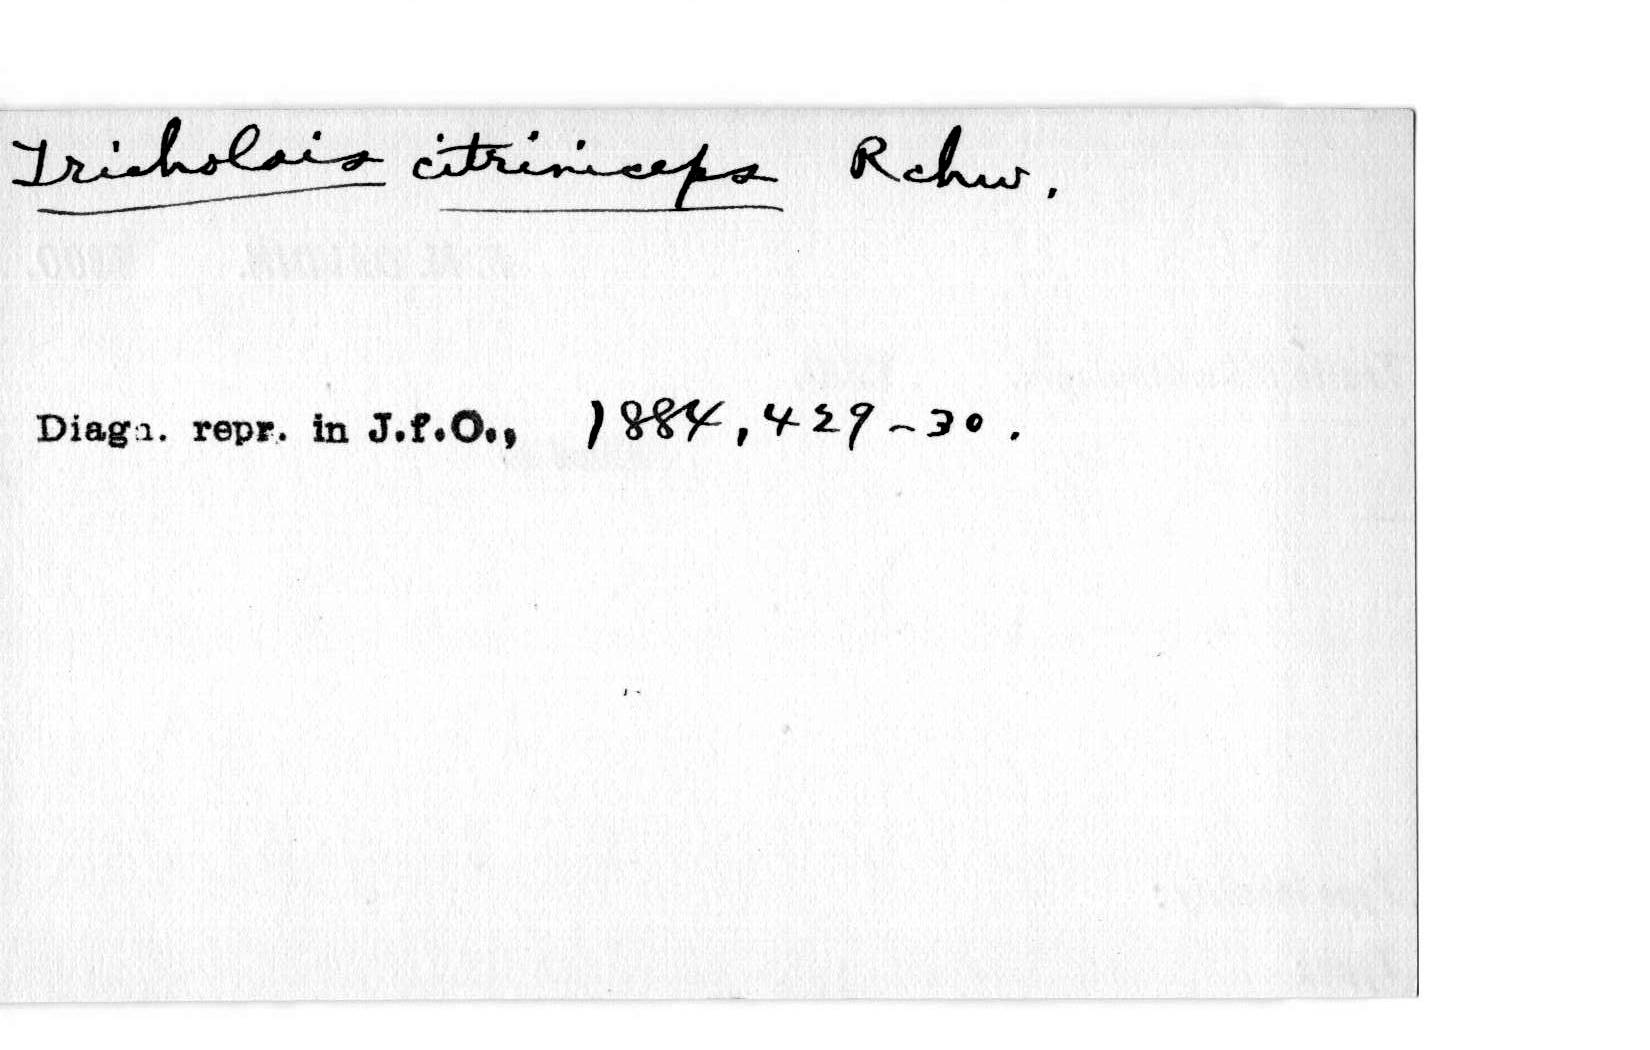 Tricholais citriniceps Rchw.
Diagn. repr. in J.f.O., 1884, 429-30.